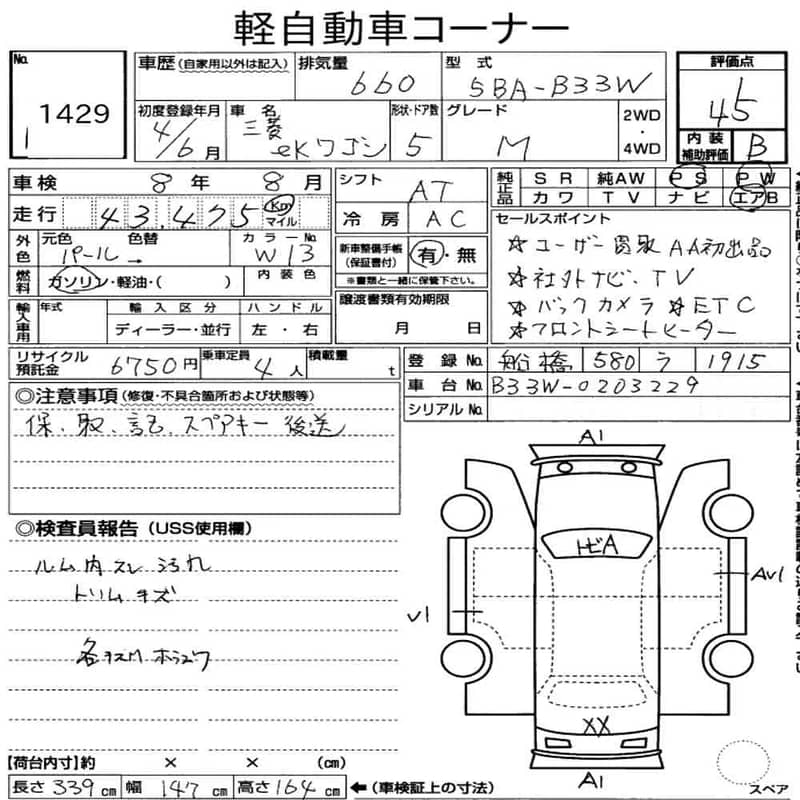 軽自動車コーナー
No. 1429
車歴 (自家用以外は記入) 排気量 660 型式 5BA-B33W 評価点 4.5
初度登録年月 4/6月 車名 三菱 eKワゴン 形状・ドア数 5 グレード M 2WD・4WD 内装補助評価 B
車検 8年 8月 シフト AT 純正品 SR 純AW PS PW
走行 43,475 Km マイル 冷房 AC カワ TV ナビ エアB
外色 元色 パール 色替 → カラーNo. W13 新車整備手帳(保証書付) 有・無 ※書類と一緒に保管下さい。
セールスポイント
☆ユーザー買取 AA初出品
☆社外ナビ、TV
☆バックカメラ ☆ETC
☆フロントシートヒーター
燃料 ガソリン・軽油・( ) 内装色
譲渡書類有効期限 月 日
輸入車用 年式 輸入区分 ディーラー・並行 ハンドル 左・右
リサイクル預託金 6750円 乗車定員 4人 積載量 t
登録No. 船橋 580 ラ 1915
車台No. B33W-0203229
シリアルNo.
◎注意事項 (修復・不具合箇所および状態等)
保、取、記、スペアキー 後送
◎検査員報告 (USS使用欄)
ルーム内スレ 汚れ
トリムキズ
A1
トビA
AV1
V1
XX
A1
スペア
【荷台内寸】約 × × (cm)
長さ 339 cm 幅 147 cm 高さ 164 cm ←(車検証上の寸法)